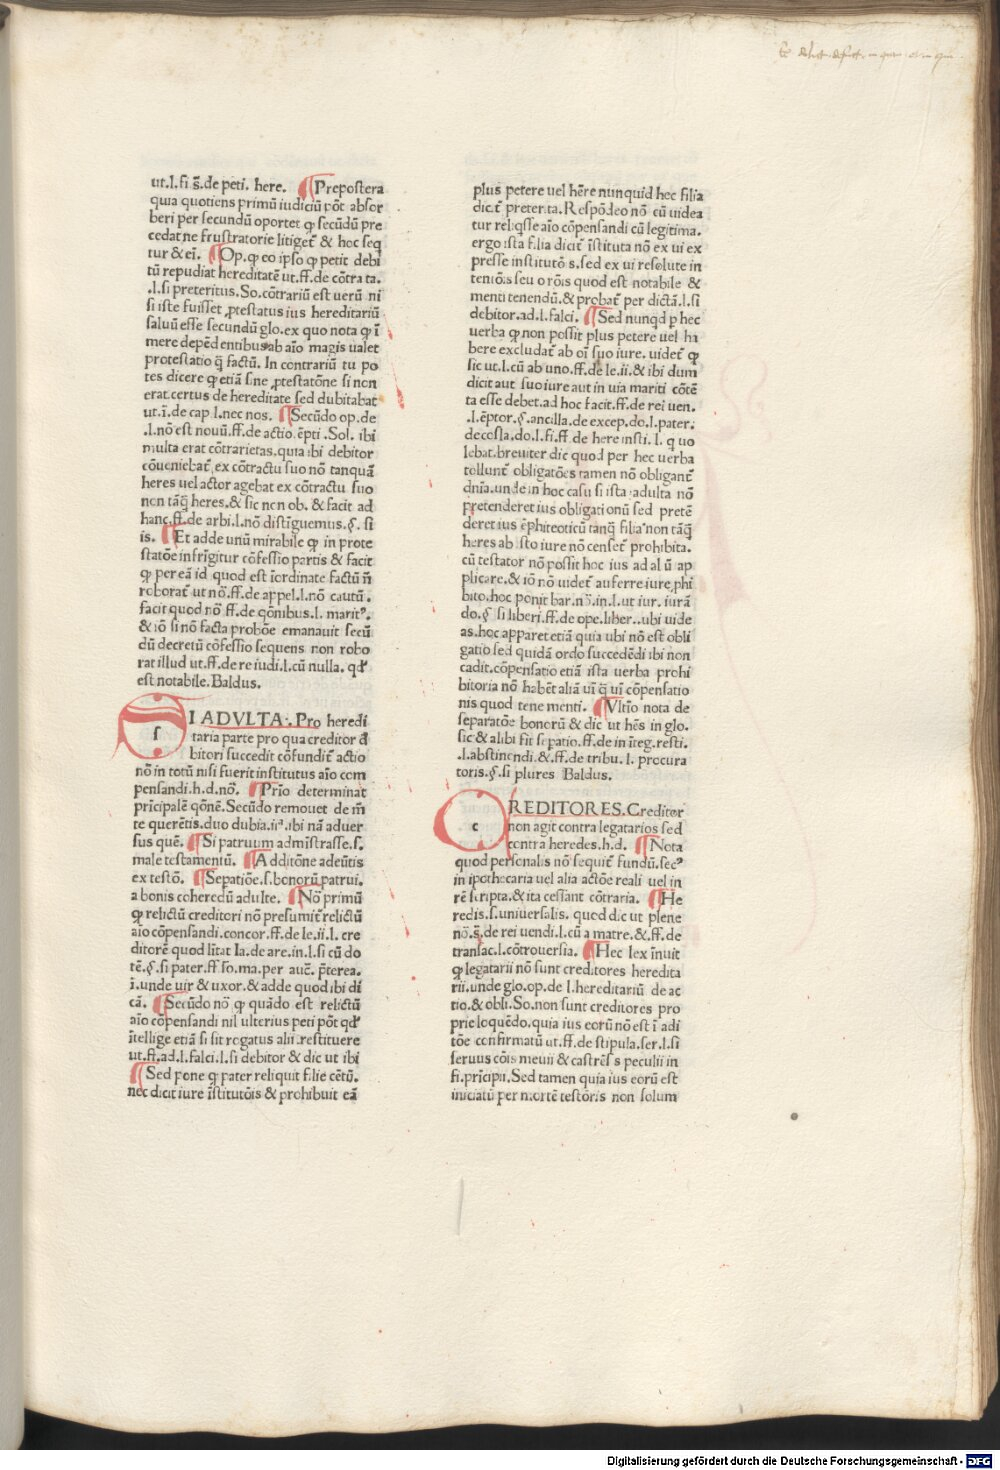 ut.l.fi s̃.de peti. here. ¶Prepostera
quia quotiens primū iudiciū pōt absor
beri per secundū oportet ꝙ secūdū pre
cedat ne frustratorie litiget̄ & hoc seq̄
tur & eī. ¶Op.ꝙ eo ipso ꝙ petit debi
tū repudiat hereditatē ut.ff.de cōtra ta.
.l.si preteritus.So.cōtrariū est uerū ni
si iste fuisset ꝓtestatus ius hereditariū
saluū esse secundū glo.ex quo nota ꝙ ī
mere depēdentibus ab aīo magis ualet
protestatio q̄ factū. In contrariū tu po
tes dicere ꝙ etiā sine ꝓtestatōne si non
erat certus de hereditate sed dubitabat
ut.ī.de cap l.nec nos. ¶Secūdo op.de
.l.nō est nouū.ff.de actio.ēpti.Sol. ibi
multa erat cōtrarietas.quia ibi debitor
cōueniebat̄ ex cōtractu suo nō tanquā
heres uel actor agebat ex cōtractu suo
non tāq̄ heres.& sic non ob. & facit ad
hanc.ff.de arbi.l.nō distīguemus.§. si
is. ¶Et adde unū mirabile ꝙ in prote
statōe infrīgitur cōfessio partis & facit
ꝙ per eā id quod est īordinate factū n̄
roborat̄ ut nō.ff.de appel.l.nō cautū.
facit quod nō ff.de q̄onibus.l. maritꝰ.
& iō si nō facta probōe emanauit secū
dū decretū cōfessio sequens non robo
rat illud ut.ff.de re iudi.l.cū nulla. qđ
est notabile.Baldus.
SI ADVLTA.Pro heredi
taria parte pro qua creditor đ
bitori succedit cōfundit̄ actio
nō in totū nisi fuerit institutus aīo com
pensandi.h.d.nō. ¶Prīo determinat
prīcipalē q̄onē.Secūdo remouet de m̄
te querētis.duo dubia.iiᵃ.ibi nā aduer
sus quē. ¶Si patruum admīstrasse.s.
male testamentū. ¶Additōne adeūtis
ex testō. ¶Sepatiōe.s.bonorū patrui.
a bonis coheredū adulte. ¶Nō primū
ꝙ relictū creditori nō presumit̄ relictū
aīo cōpensandi.concor.ff.de le.ii.l. cre
ditorē quod līt̄at Ia.de are.in.l.si cū do
tē.§.si pater.ff so.ma.per auc̄. p̄terea.
ī.unde uir & uxor.& adde quod ibi di
cā. ¶Secūdo nō ꝙ quādo est relictū
aīo cōpensandi nil ulterius peti pōt qđ
ītellige etiā si sit rogatus alii restituere
ut.ff.ad.l.falci.l.si debitor & dic ut ibi
¶Sed pone ꝙ pater reliquit filie cētū.
nec dicit iure īstitutōis & prohibuit eā
plus petere uel hēre nunquid hec filia
dic.t̄ preter.ta.Respōdeo nō cū uidea
tur reliq̄sse aīo cōpensandi cū legitima.
ergo ista filia dicit̄ īstituta nō ex ui ex
presse institutōis.sed ex ui resolute in
tentiōis seu orōis quod est notabile &
menti tenendū.& probat̄ per dictā.l.si
debitor.ad.l.falci. ¶Sed nunqd ꝑ hec
uerba ꝙ non possit plus petere uel ha
bere excludat̄ ab oī suo iure. uidet̄ ꝙ
sic ut l.cū ab uno.ff.de le.ii.& ibi dum
dicit aut suo iure aut in uia mariti cōtē
ta esse debet.ad hoc facit.ff.de rei uen.
.l.ēptor.§.ancilla.de excep.do.l.pater.
de costa.do.l.fi.ff.de here insti. l. q uo
lebat.breuiter dic quod per hec uerba
tollunt̄ obligatōes tamen nō obligant̄
dnīa.unde in hoc casu si ista adulta nō
pretenderet ius obligationū sed pretē
deret ius ēphiteoticū tanq̄ filia non tāq̄
heres ab isto iure nō censet̄ prohibita.
cū testator nō possit hoc ius ad al ū ap
plicare.& iō nō uidet̄ auferre iure phi
bito.hoc ponit bar.nō.in.l.ut iur. iurā
do.§ si liberi.ff.de ope.liber..ubi uide
as.hoc apparet etiā quia ubi nō est obli
gatio sed quidā ordo succedēdi ibi non
cadit.cōpensatio etiā ista uerba prohi
bitoria nō habēt aliā uī q̄ uī cōpensatio
nis quod tene menti. ¶Vltīo nota de
separatōe bonorū & dic ut hēs in glo.
sic & alibi fit sepatio.ff.de in īteg.resti.
.l.abstinendi.& ff.de tribu. l. procura
toris.§.si plures Baldus.
CREDITORES.Creditor
non agit contra legatarios sed
contra heredes.h.d. ¶Nota
quod personalis nō sequit̄ fundū.secꝰ
in ipothecaria uel alia actōe reali uel in
rē scripta.& ita cessant cōtraria. ¶He
redis.s.uniuersalis. quod dic ut plene
nō.s̃.de rei uendi.l.cū a matre.&.ff.de
transac.l.cōtrouersia. ¶Hec lex īnuit
ꝙ legatarii nō sunt creditores heredita
rii.unde glo.op.de l.hereditariū de ac
tio.& obli.So.non sunt creditores pro
prie loquēdo.quia ius eorū nō est ī adi
tōe confirmatū ut.ff.de stipula.ser.l.si
seruus cōis meuii & castrēsis peculii in
fi.prīcipii.Sed tamen quia ius eorū est
iniciatū per mortē testōris non solum
Digitalisierung gefördert durch die Deutsche Forschungsgemeinschaft - DFG